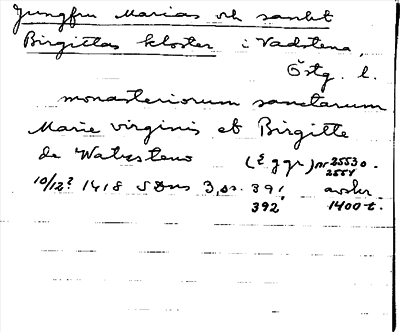 Jungfru Marias och sankt
Birgittas kloster i Vadstena,
Östg. l.
monasteriorum sanctarum
Marie virginis et Birgitte
de Watzsteno (2 ggr) nr 25530.
2554
10/12? 1418 SDns 3, s. 391 avskr
392 1400-t.